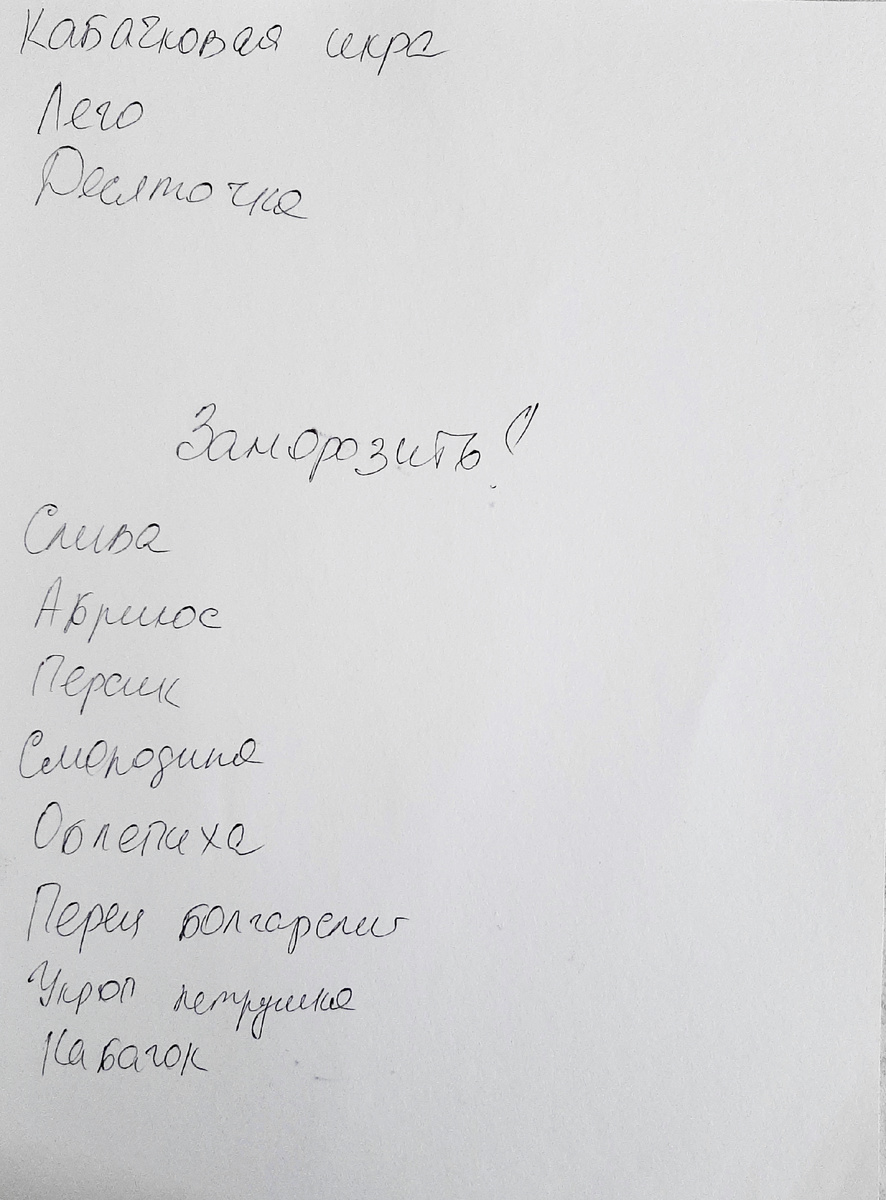 Кабачковая икра
Лего
Десяточка
Заморозить!
Слива
Абрикос
Персик
Смородина
Облепиха
Перец болгарский
Укроп петрушка
Кабачок